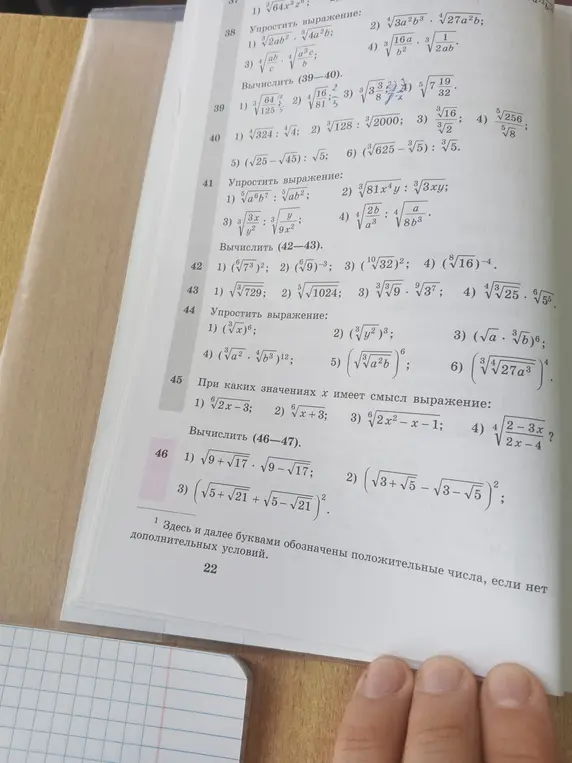 37
1) ∜64x³z⁶;
38 Упростить выражение:
1) ∛2ab² · ∛4a²b; 2) ∜3a²b³ · ∜27a²b;
3) ∜(ab/c) · ∜(a³c/b); 4) ∛(16a/b²) · ∛(1/2ab).
Вычислить (39—40).
39 1) ∛(64/125); 2) ∜(16/81); 3) ∛(3 3/8); 4) ⁵√(7 19/32).
40 1) ∜324 : ∜4; 2) ∛128 : ∛2000; 3) ∛16/∛2; 4) ⁵√256/⁵√8;
5) (√25 − √45) : √5; 6) (∛625 − ∛5) : ∛5.
41 Упростить выражение:
1) ⁵√a⁶b⁷ : ⁵√ab²; 2) ∛81x⁴y : ∛3xy;
3) ∛(3x/y²) : ∛(y/9x²); 4) ∜(2b/a³) : ∜(a/8b³).
Вычислить (42—43).
42 1) (⁶√7³)²; 2) (⁶√9)⁻³; 3) (¹⁰√32)²; 4) (⁸√16)⁻⁴.
43 1) √∛729; 2) ⁵√√1024; 3) ∛∛9 · ⁹√3⁷; 4) ∜∛25 · ⁶√5⁵.
44 Упростить выражение:
1) (∛x)⁶; 2) (∛y²)³; 3) (√a · ∛b)⁶;
4) (∛a² · ∜b³)¹²; 5) (√∛a²b)⁶; 6) (∛∜27a³)⁴.
45 При каких значениях x имеет смысл выражение:
1) ⁶√2x − 3; 2) ⁶√x + 3; 3) ⁶√2x² − x − 1; 4) ∜((2 − 3x)/(2x − 4)) ?
Вычислить (46—47).
46 1) √(9 + √17) · √(9 − √17); 2) (√(3 + √5) − √(3 − √5))²;
3) (√(5 + √21) + √(5 − √21))².
¹ Здесь и далее буквами обозначены положительные числа, если нет
дополнительных условий.
22